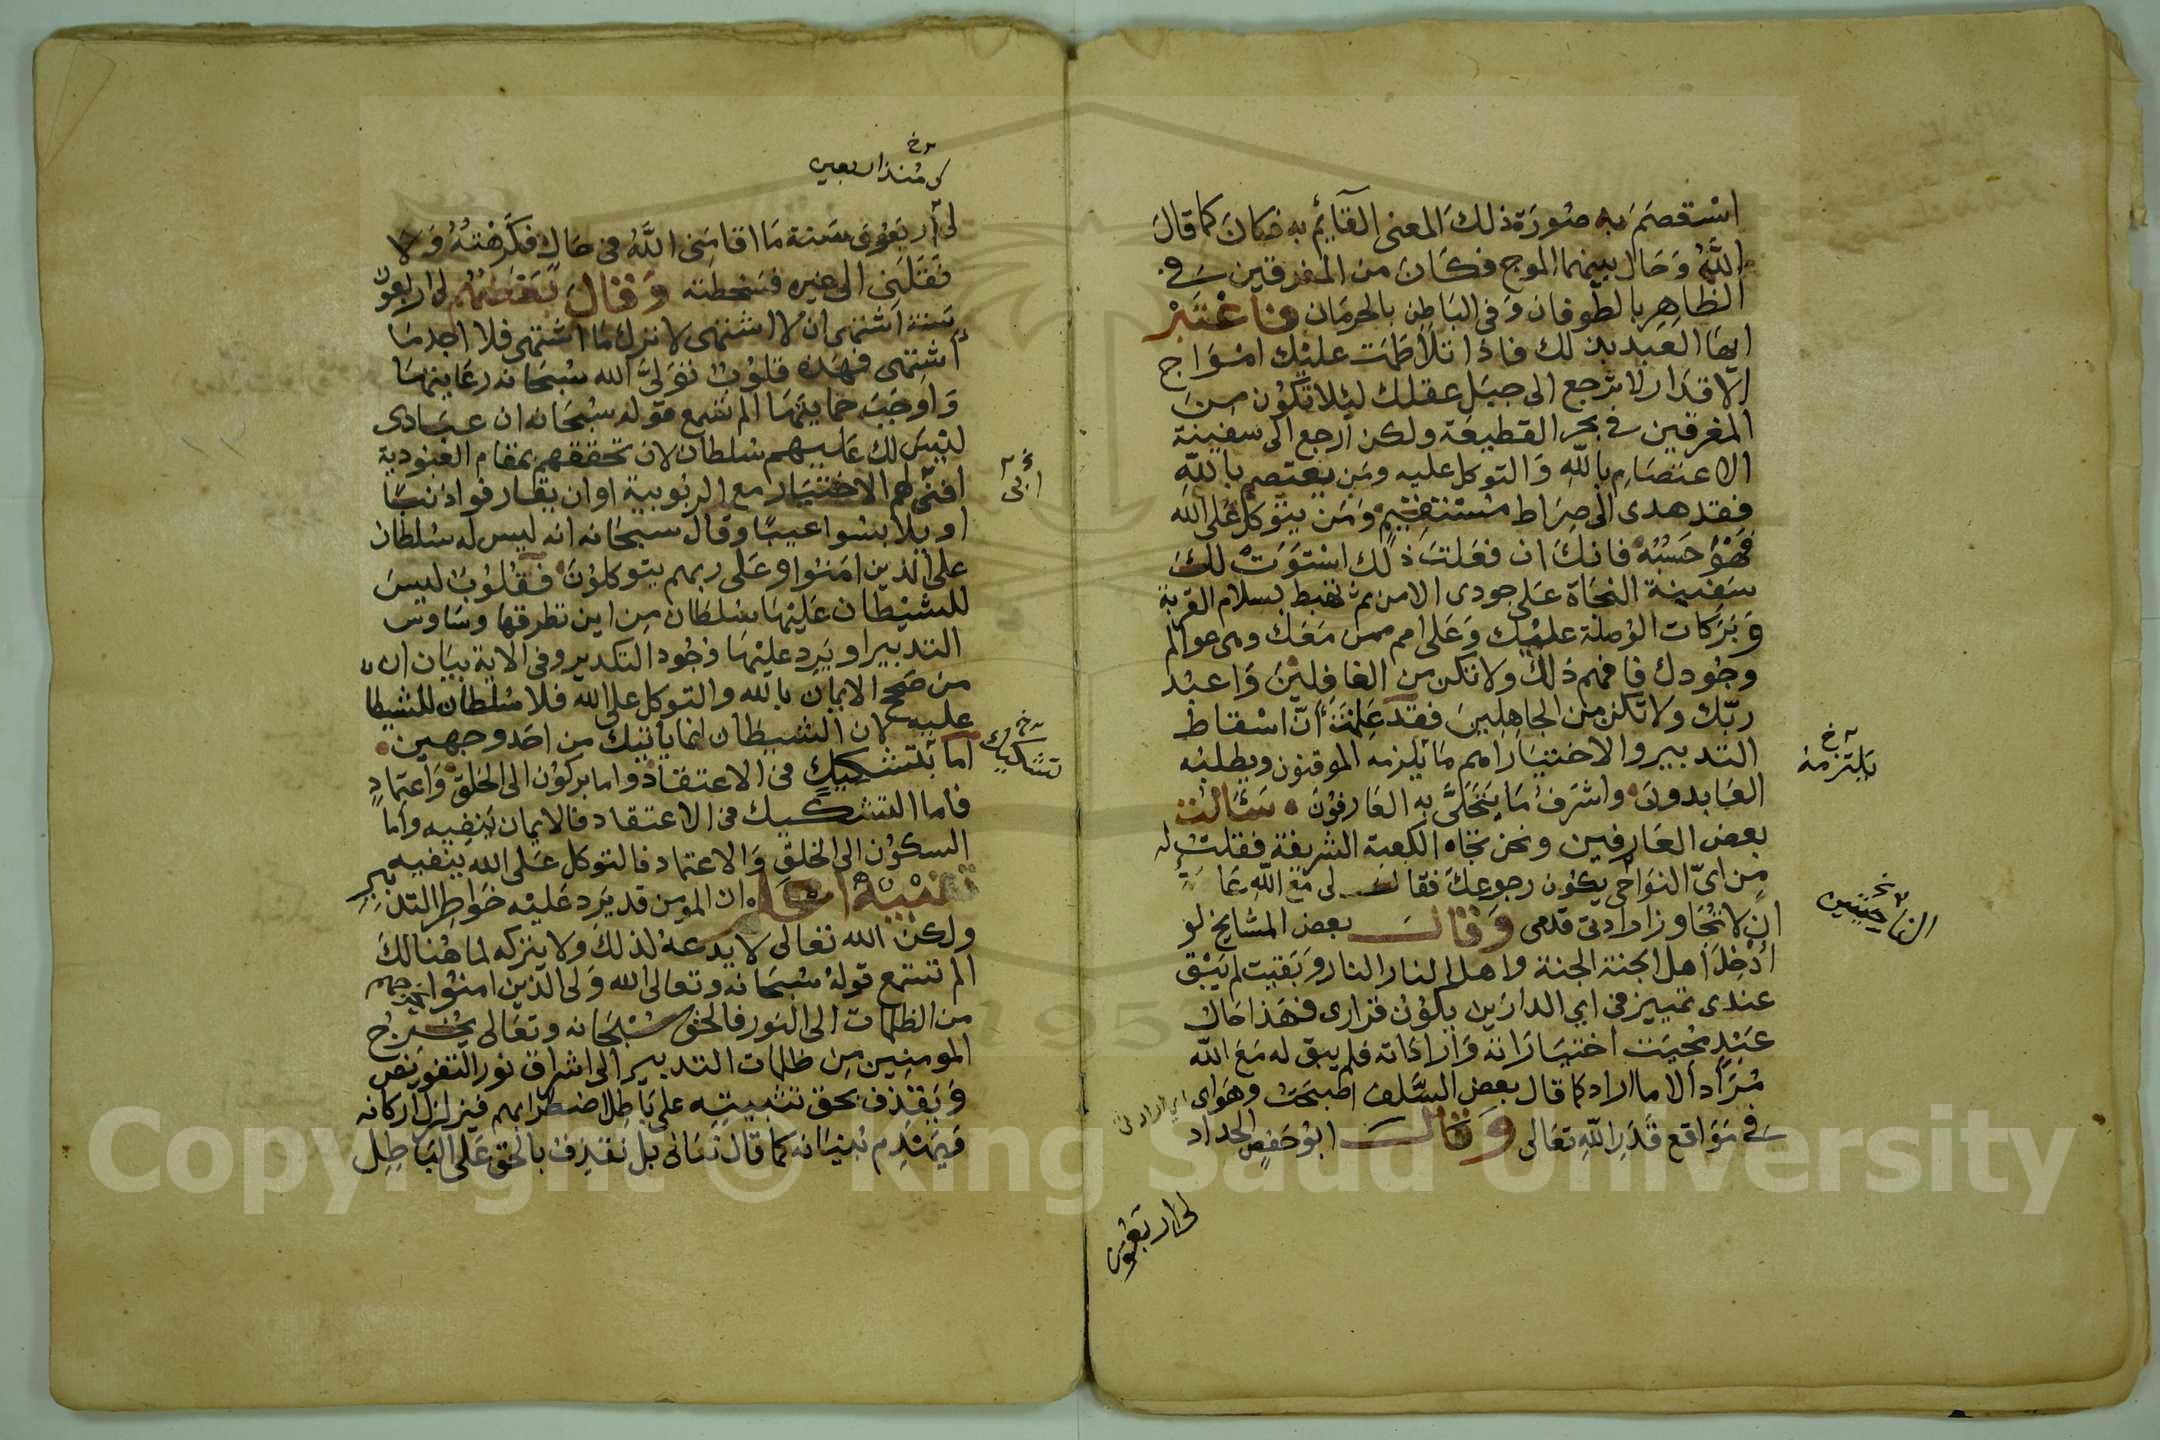 استعصم به صورة ذلك المعنى القآئم به فكان كما قال
الله وحال بينهما الموج فكان من المغرقين في
الظاهر بالطوفان وفى الباطن بالحرمان فاعتبر
ايها العبد بذلك فاذا تلاطمت عليك امواج
الاقدار لا ترجع الى جبل عقلك ليلا تكون من
المغرقين في بحر القطيعة ولكن ارجع الى سفينة
الاعتصام بالله والتوكل عليه ومن يعتصم بالله
فقد هدى الى صراط مستقيم ومن يتوكل على الله
فهو حسبه فانك ان فعلت ذلك استوت لك
سفينة النجاة على جودى الامن ثم تهبط بسلام القربة
وبركات الوصلة عليك وعلى امم ممن معك وهى عوالم
وجودك فافهم ذلك ولا تكن من الغافلين واعبد
ربك ولا تكن من الجاهلين فقد علمت ان اسقاط
التدبير والاختيار اهم ما يلزمه الموقنون ويطلبه
العابدون واشرف ما يتحلى به العارفون سألت
بعض العارفين ونحن تجاه الكعبة الشريفة فقلت له
من اى النواحى يكون رجوعك فقال لى مع الله عادة
ان لا تجاوز ارادتى قدمى وقال بعض المشايخ لو
ادخل اهل الجنة الجنة واهل النار النار وبقيت لم يبق
عندى تمييز فى اي الدارين يكون قرارى فهذا حال
عبد محيت اختياراته واراداته فلم يبق له مع الله
مراد الا ما اراد كما قال بعض السلف اصبحت وهواى
في مواقع قدر الله تعالى وقال ابو حفص الحداد
يلتزمه خ
الناحيتين
لى اربعون
كـ منذ اربعين خ
لى اربعون سنة ما اقامنى الله فى حال فكرهته ولا
نقلنى الى غيره فسخطته وقال بعضهم لى اربعون
سنة اشتهى ان لا اشتهى لا ترك ما اشتهى فلا اجد ما
اشتهى فهذه قلوب تولى الله سبحانه رعايتها
واوجب حمايتها الم تسمع قوله سبحانه ان عبادى
ليس لك عليهم سلطان لان تحققهم بمقام العبودية
ابى لهم الاختيار مع الربوبية او ان يقارفوا ذنبا
او يلابسوا عيبا وقال سبحانه انه ليس له سلطان
على الذين امنوا وعلى ربهم يتوكلون فقلوب ليس
للشيطان عليها سلطان من اين تطرقها وساوس
التدبير او يرد عليها وجود التكدير وفى الاية بيان ان
من صحح الايمان بالله والتوكل على الله فلا سلطان للشيطا
عليه لان الشيطان انما ياتيك من احد وجهين
اما بتشكيك فى الاعتقاد واما بركون الى الخلق واعتماد
فاما التشكيك فى الاعتقاد فالايمان ينفيه واما
السكون الى الخلق والاعتماد فالتوكل على الله ينفيه
تنبيه اعلم ان المومن قد يرد عليه خواطر التدبير
ولكن الله تعالى لا يدعه لذلك ولا يتركه لما هنالك
الم تسمع قوله سبحانه وتعالى الله ولى الذين امنوا يخرجهم
من الظلمات الى النور فالحق سبحانه وتعالى يخرج
المومنين من ظلمات التدبير الى اشراق نور التفويض
ويقذف بحق تثبيته على باطل اضطرابهم فيزلزل اركانه
فيهدم بنيانه كما قال تعالى بل نقذف بالحق على الباطل
ابى
تشكيك خ
1957
Copyright © King Saud University